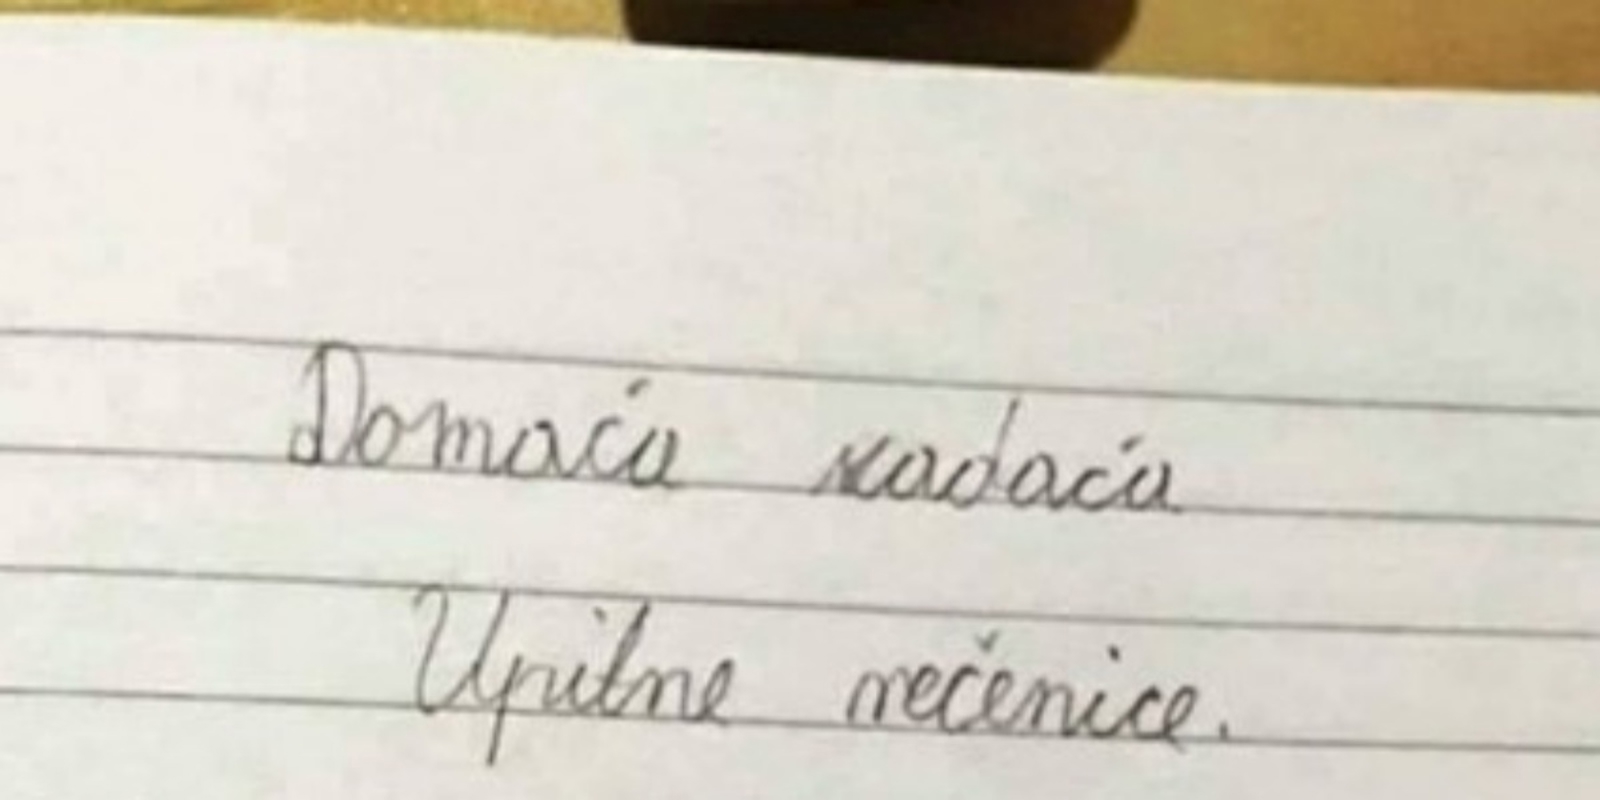 Domaća zadaća
Upitne rečenice.